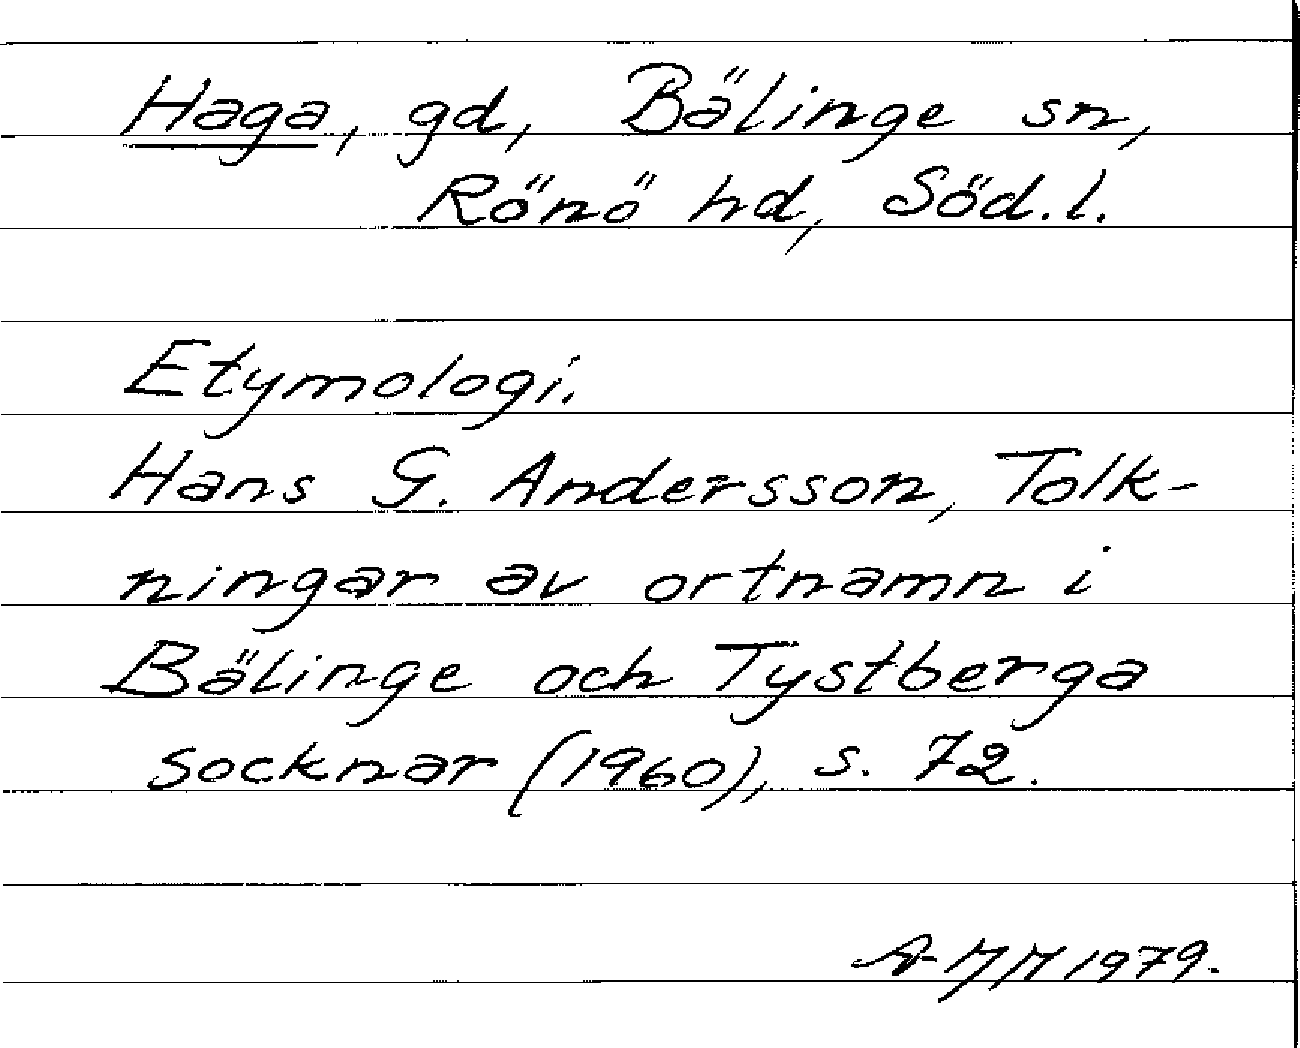 Haga, gd, Bälinge sn,
Rönö hd, Söd.l.
Etymologi.
Hans G. Andersson, Tolk-
ningar av ortnamn i
Bälinge och Tystberga
socknar (1960), s. 72.
1979.